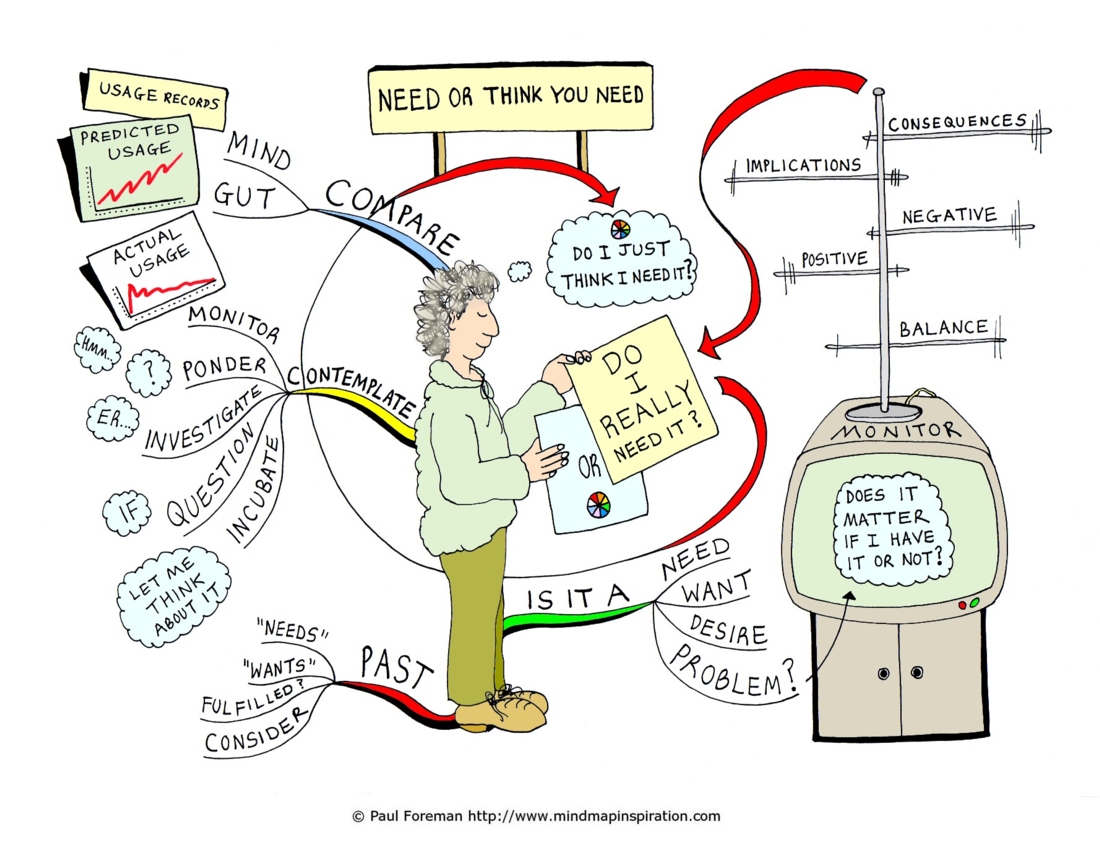 NEED OR THINK YOU NEED
USAGE RECORDS
PREDICTED
USAGE
ACTUAL
USAGE
COMPARE
MIND
GUT
DO I JUST
THINK I NEED IT?
CONTEMPLATE
MONITOR
PONDER
INVESTIGATE
QUESTION
INCUBATE
HMM...
?
ER...
IF
LET ME
THINK
ABOUT IT
PAST
"NEEDS"
"WANTS"
FULFILLED?
CONSIDER
DO
I
REALLY
NEED IT?
OR
IS IT A
NEED
WANT
DESIRE
PROBLEM?
CONSEQUENCES
IMPLICATIONS
NEGATIVE
POSITIVE
BALANCE
MONITOR
DOES IT
MATTER
IF I HAVE
IT OR NOT?
© Paul Foreman http://www.mindmapinspiration.com